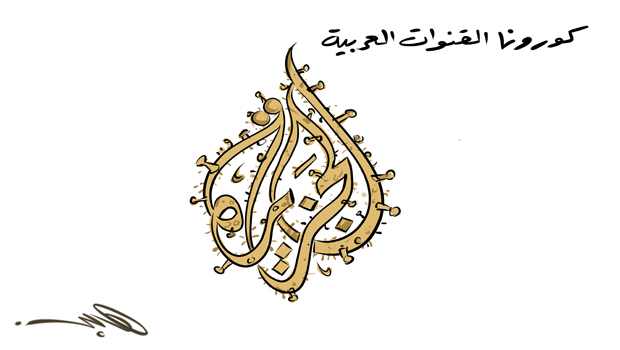 كورونا القنوات العربية
الجزيرة